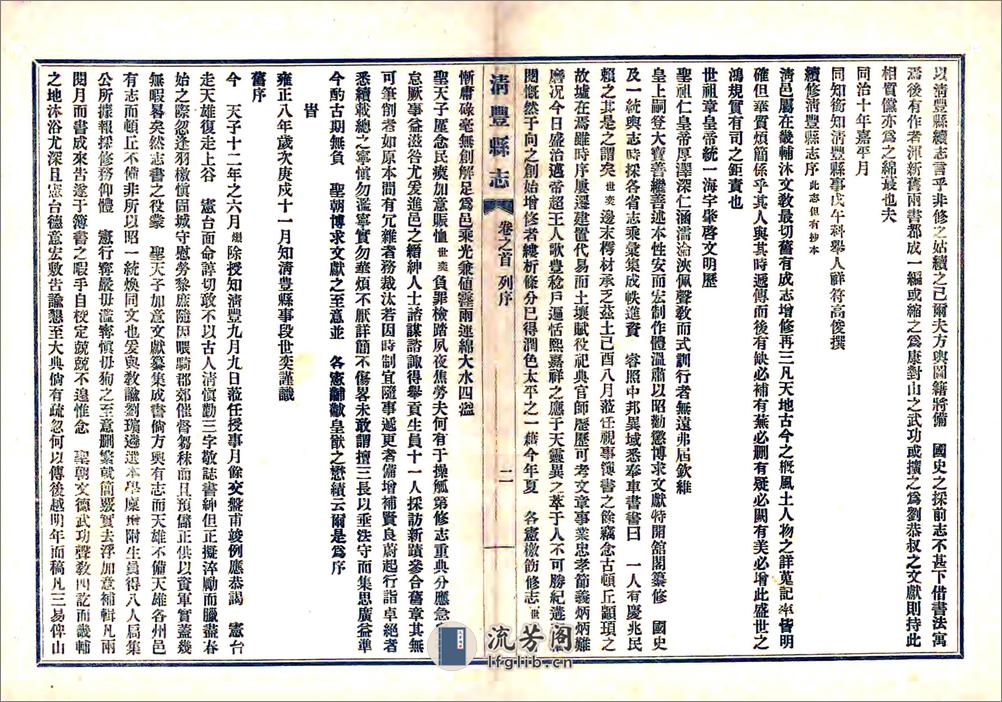 以清豐縣續志言乎非修之姑續之已爾夫方輿圖籍將備　國史之採前志不甚下借書法寓
焉後有作者渾新舊兩書都成一編或縮之爲康對山之武功或擴之爲劉恭叔之文獻則持此
相質儻亦爲之綿蕞也夫
同治十年嘉平月
同知銜知清豐縣事戊午科舉人祥符高俊撰
續修清豐縣志序 此志但有抄本
清邑屬在畿輔沐文敎最切舊有成志增修再三凡天地古今之槪風土人物之詳蒐記率皆明
確但華質煩簡係乎其人與其時遞傳而後有缺必補有蕪必删有疑必闕有美必增此盛世之
鴻規實有司之鉅責也
世祖章皇帝統一海宇肇啓文明歷
聖祖仁皇帝厚澤深仁涵濡淪浹佩聲敎而式訓行者無遠弗屆欽維
皇上嗣登大寶善繼善述本性安而宏制作體溫肅以昭勸懲博求文獻特開館閣纂修　國史
及一統輿志時採各省志乘彙集成帙進資　睿照中邦異域悉奉車書書曰　一人有慶兆民
賴之其是之謂矣世奕邊末樗材承乏茲土己酉八月蒞任視事簿書之餘竊念古頓丘顓頊之
故墟在焉雖時序屢遷建置代易而土壤賦役祠典官師歷歷可考文章事業忠孝節義炳炳難
磨况今日盛治邁帝超王人歌豐稔戶遍恬熙嘉祥之應于天靈異之萃于人不可勝紀邇
閱慨然于向之創始增修者縷析條分已得潤色太平之一蘊今年夏　各憲檄飭修志世
清豐縣志　卷之首 列序　二
慚庸碌毫無創解足爲邑乘光兼値霪雨連綿大水四溢
聖天子厪念民瘼加意賑恤世奕負罪檢踏夙夜焦勞夫何有于操觚第修志重典分應急
怠厥事益滋咎戾爰進邑之縉紳人士諸謀諮諏得舉貢生員十一人採訪新蹟參合舊章其無
可筆削者如原本間有冗雜者務裁汰若因時制宜隨事遞更者備增補賢良蔚起行詣卓絕者
悉續載總之寧愼勿濫寧實勿華煩不厭詳簡不傷畧未敢謂擅三長以垂法守而集思廣益準
今酌古期無負　聖朝博求文獻之至意並　各憲黼黻皇猷之懋績云爾是爲序
旹
雍正八年歲次庚戌十一月知清豐縣事段世奕謹識
舊序
今　天子十二年之六月　除授知清豐九月九日蒞任授事月餘交盤甫竣例應恭謁　憲台
走天雄復走上谷　憲台面命諄切敢不以古人清愼勤三字敬誌書紳但正擬淬勵而臘盡春
始之際忽逢羽檄愼固城守慰勞黎庶隨因喂騎郡郊催督芻秣而且預備正供以資軍實蓋幾
無暇晷矣然志書之役蒙　聖天子加意文獻纂集成書倘方輿有志而天雄不備天雄各州邑
有志而頓丘不備非所以昭一統煥同文也爰與敎諭劉璸遴選本學廩增附生員得八人局集
公所據報採修務仰體　憲行奪愼毋濫奪愼毋徇之至意删繁就簡覈實去浮加意補輯凡兩
閱月而書成來告遂于簿書之暇手自校定兢兢不遑惟念　聖朝文德武功聲敎四訖而畿輔
之地沐浴尤深且憲台德意宏敷告諭懇至大典倘有疏忽何以傳後越明年而稿凡三易俾山
流芳阁
lfglib.cn